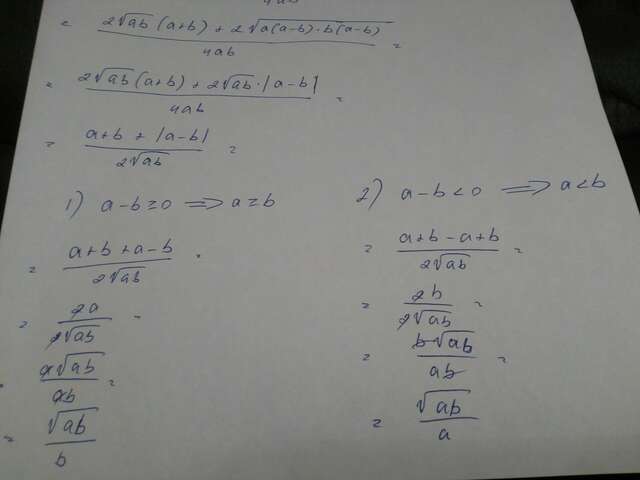 4ab
= 2√ab (a+b) + 2√a(a-b)·b(a-b) / 4ab =
= 2√ab (a+b) + 2√ab · |a-b| / 4ab =
= a+b + |a-b| / 2√ab =
1) a-b≥0 ⟹ a≥b
2) a-b<0 ⟹ a<b
= a+b+a-b / 2√ab =
= 2a / 2√ab =
= a√ab / ab =
= √ab / b
= a+b-a+b / 2√ab =
= 2b / 2√ab =
= b√ab / ab =
= √ab / a